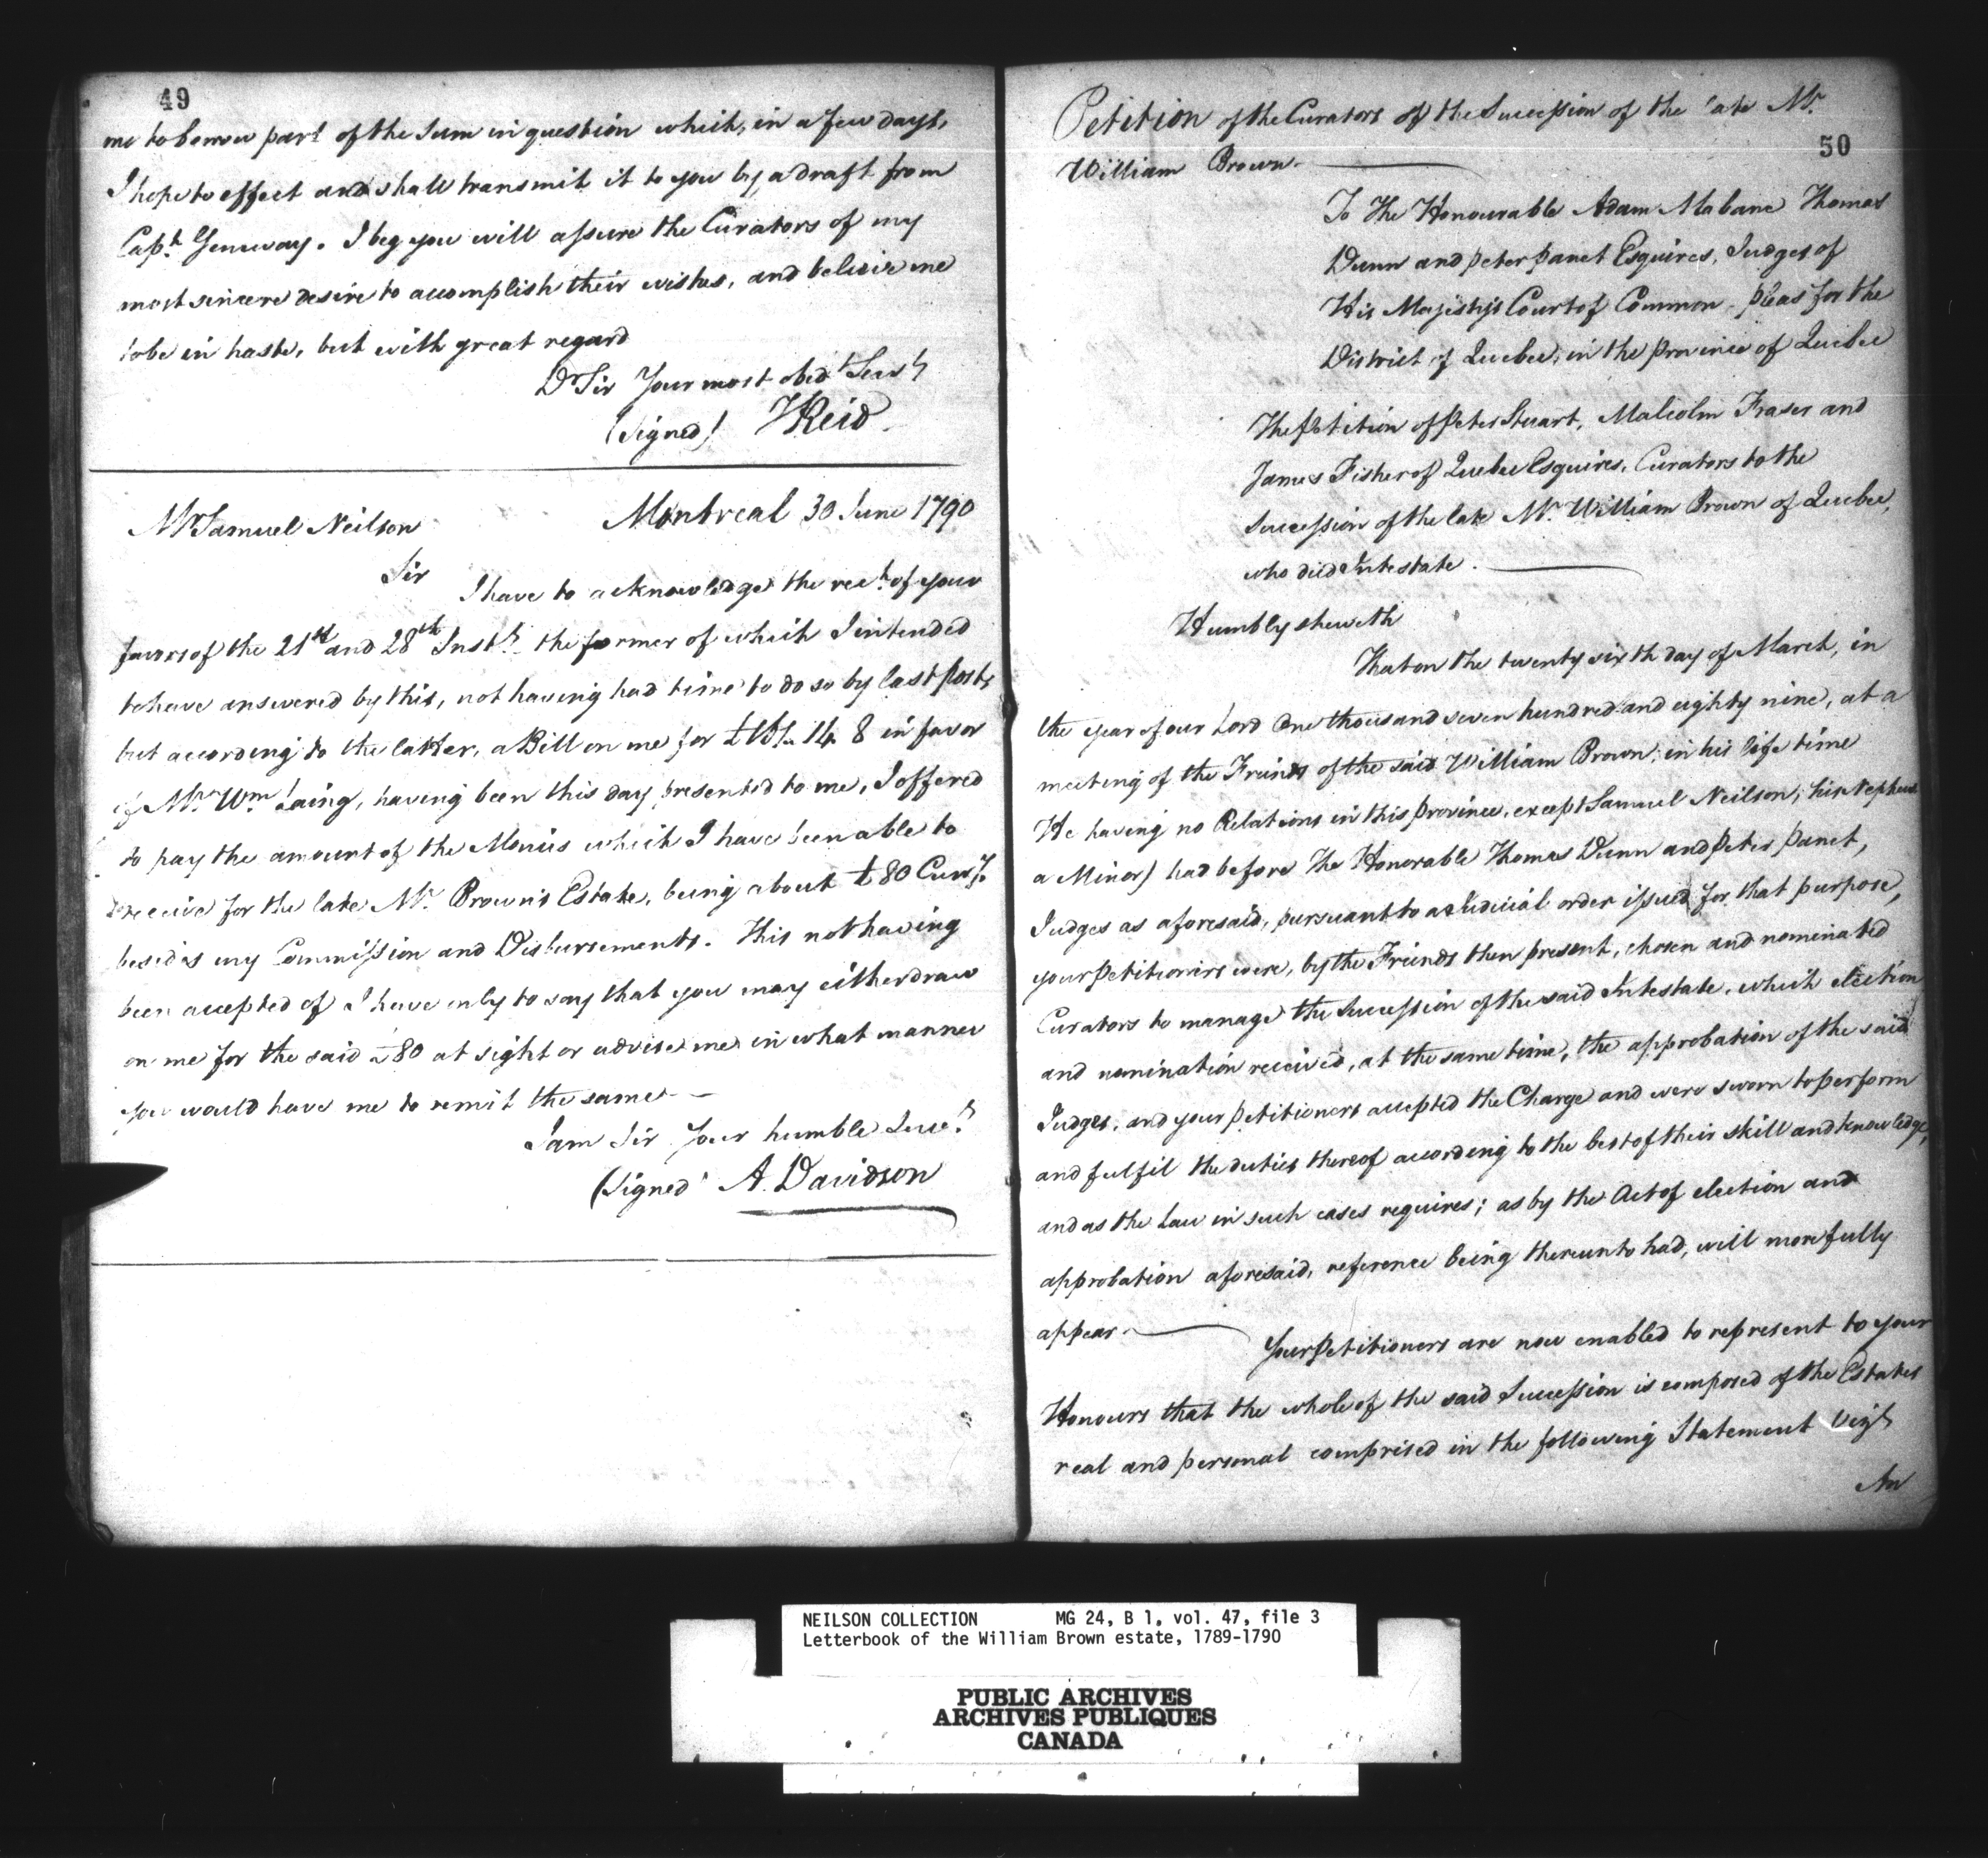 49
me to borrow part of the Sum in question which, in a few days,
I hope to effect and shall transmit it to you by a draft from
Capt. . I beg you will assure the Curators of my
most sincere desire to accomplish their wishes, and believe me
to be in haste, but with great regard
Dr Sir Your most obed Servt
(Signed) Reid
Mr Samuel Neilson Montreal 30 June 1790
Sir I have to acknowledge the rect. of your
favors of the 21st and 28th Inst. the former of which I intended
to have answered by this, not having had time to do so by last post,
but according to the latter, a Bill on me for 14 8 in favor
of Mr. Wm Laing, having been this day presented to me, I offered
to pay the amount of the Monies which I have been able to
receive for the late Mr. Brown's Estate, being about £80 Curry.
besides my Commission and Disbursements. This not having
been accepted of I have only to say that you may either draw
on me for the said £80 at sight or advise me in what manner
you would have me to remit the same
I am Sir Your humble Servt.
(Signed) A. Davidson
Petition of the Curators of the Succession of the late Mr.
50
William Brown.
To The Honourable Adam Mabane Thomas
Dunn and Peter Panet Esquires, Judges of
His Majesty's Court of Common-pleas for the
District of Quebec, in the Province of Quebec
The Petition of Peter Stuart, Malcolm Fraser and
James Fisher of Quebec Esquires, Curators to the
Succession of the late Mr. William Brown of Quebec,
who died Intestate.
Humbly sheweth
That on the twenty sixth day of March, in
the year of our Lord One thousand seven hundred and eighty nine, at a
meeting of the Friends of the said William Brown, in his life time
He having no Relations in this Province, except Samuel Neilson, his Nephew
a Minor) had before The Honorable Thomas Dunn and Peter Panet,
Judges as aforesaid, pursuant to a Judicial order issued for that purpose,
your Petitioners were, by the Friends then present, chosen and nominated
Curators to manage the Succession of the said Intestate, which election
and nomination received, at the same time, the approbation of the said
Judges, and your Petitioners accepted the Charge and were sworn to perform
and fulfil the duties thereof according to the best of their skill and knowledge,
and as the Law in such cases requires; as by the Act of election and
approbation aforesaid, reference being thereunto had, will more fully
appear.
Your Petitioners are now enabled to represent to your
Honours that the whole of the said Succession is composed of the Estates
real and personal comprised in the following Statement Vizt
An
NEILSON COLLECTION MG 24, B 1, vol. 47, file 3
Letterbook of the William Brown estate, 1789-1790
PUBLIC ARCHIVES
ARCHIVES PUBLIQUES
CANADA